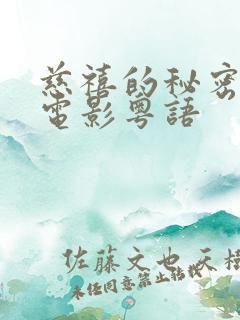 慈禧的秘密
電影粵語
佐藤文也 天樹
未任同意禁止轉載